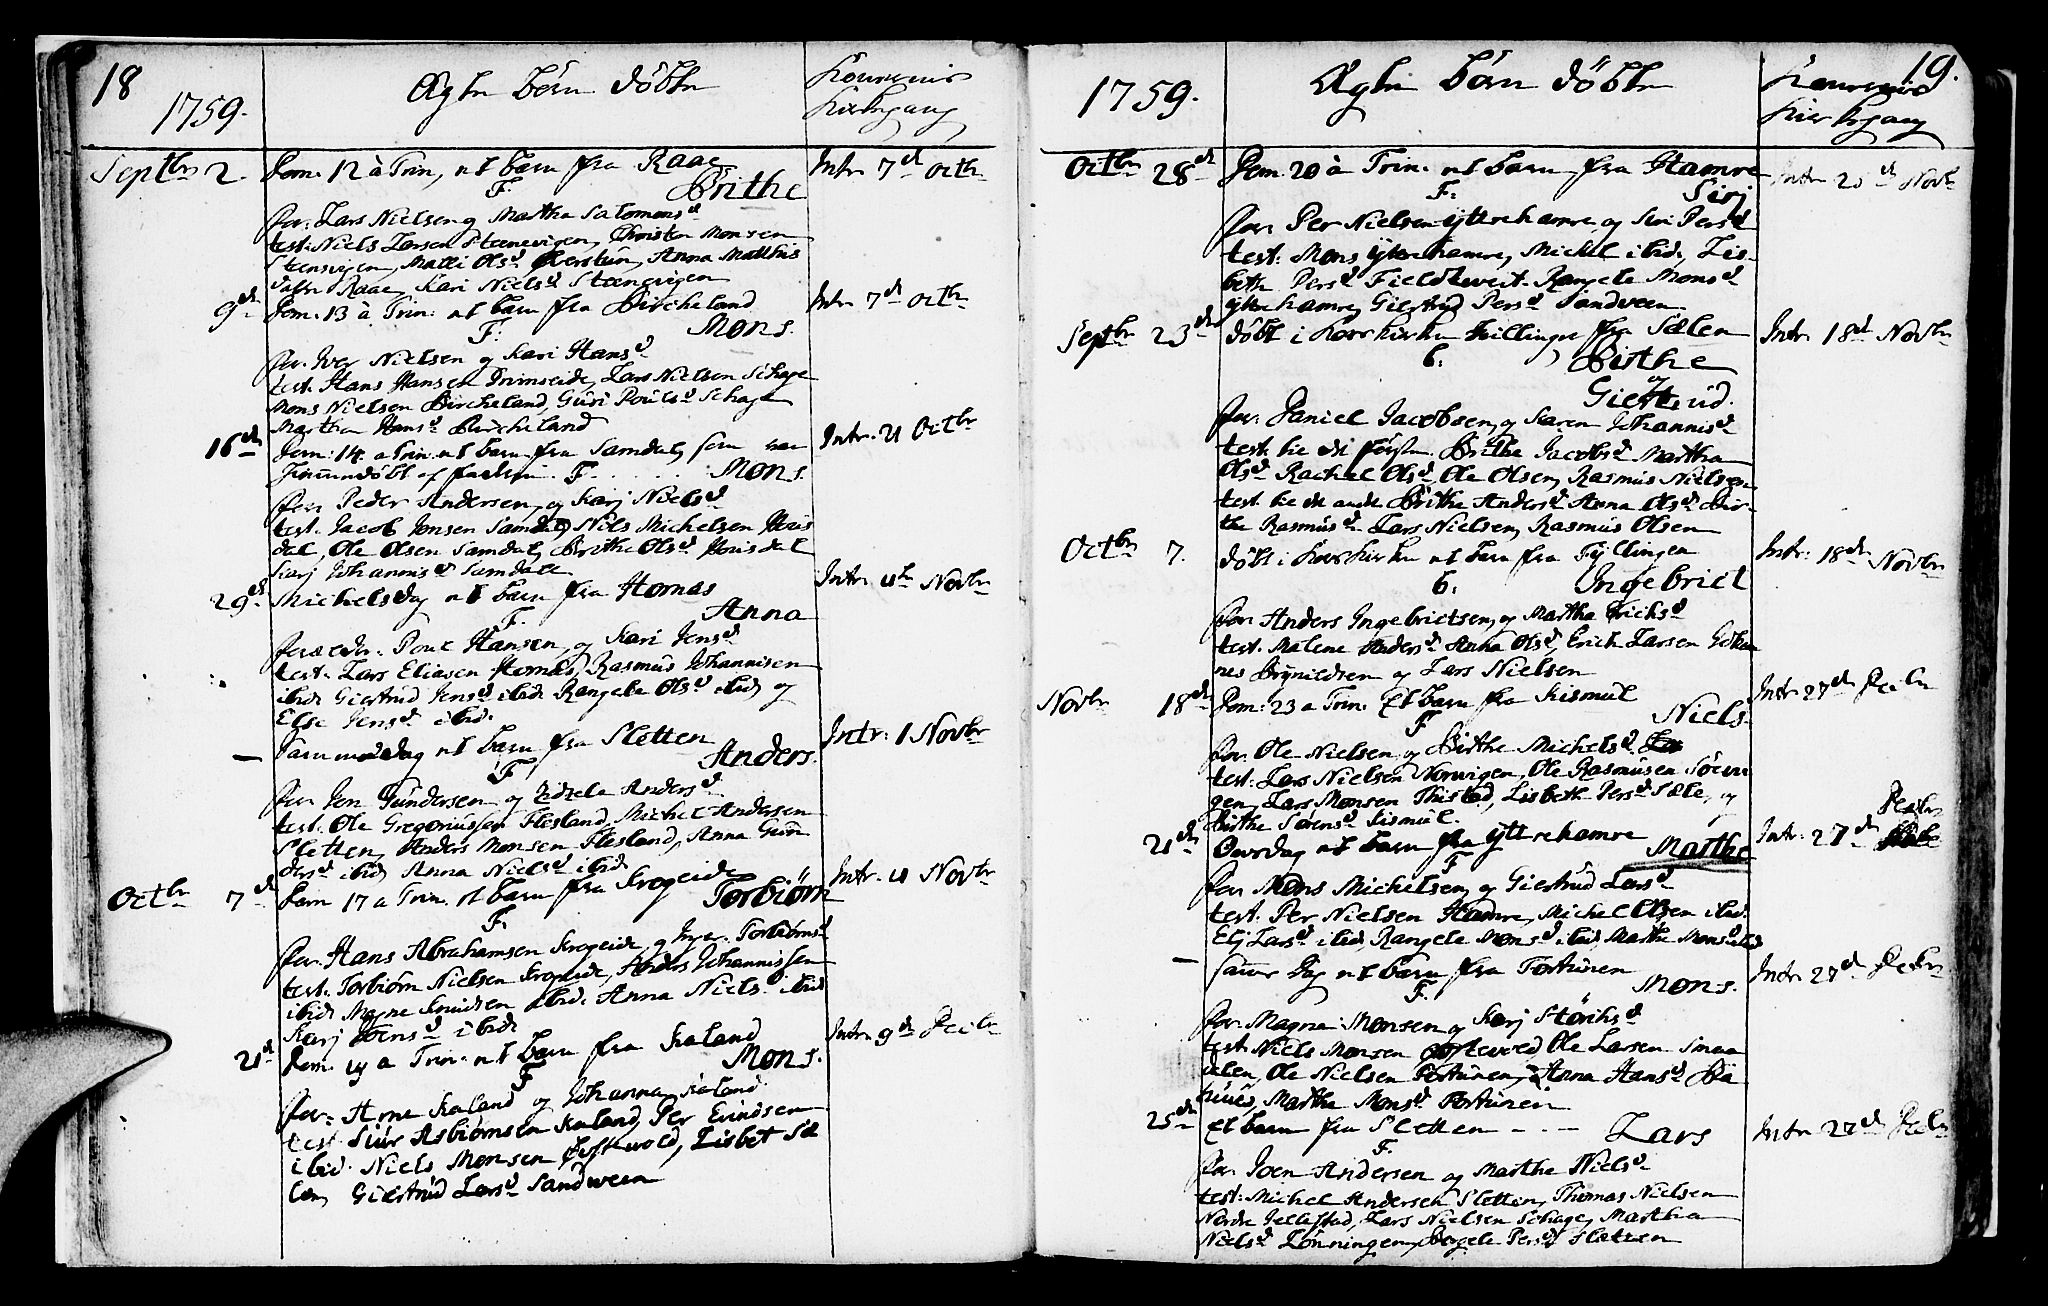 18
1759.
Ægte børn døbte
Konernis
Kirkegang
Septbr 2.
Dom. 12 à Trin, et barn fra Raae
Intr. 7de Octbr
F. Brithe
for. Lars Nielsen og Martha Salomonsd
test. Niels Larsen Steenevigen, Christen Monsen
Steenvigen, Malli Olsd Øverstun, Anna Matthis
datr Raae, Kari Nielsd Steenevigen
9de
Dom. 13 à Trin: et barn fra Bircheland
Intr. 7de Octbr
F: Mons.
for. Iver Nielsen og Kari Hansd
test. Hans Hansen Grimseide, Lars Nielsen Schage
Mons Nielsen Bircheland, Guri Poulsd Schage
Martha Hansd Bircheland
16de
Dom: 14 a Trin. et barn fra Samdal, som var
Intr. 21 Octbr
hiemmedøbt af faderen. F. Mons.
for. Peder Andersen, og Karj Nielsd
test. Jacob Jensen Samdal, Nils Michelsen
dal, Ole Olsen Samdal, Brithe Olsd
Karj Johannisd Samdall
29de
Michelsdag et barn fra Hornas
Intr. 4de Novbr
F. Anna
forældre. Poul Hansen, og Kari Jensd
test. Lars Eliasen Hornas, Rasmus Johannisen
ibid Giertrud Jensd ibid. Rangele Olsd ibid, og
Else Jensd ibid.
—
Samme dag et barn fra Sletten
Intr. 1 Novbr
F. Anders.
for. Jon Gundersen og Andersd
test. Ole Gregoriussen Flesland, Michel Andersen
Sletten, Anders Monsen Flesland, Anna Gun
dersd ibid Anna Nielsd ibid
Octbr 7de
Dom 17 a Trin. et barn fra Krogeide
Intr. 4 Novbr
F. Torbiørn
for. Hans Abrahamsen Krogeide, og Inger Torbiørnsd
test. Torbiørn Nielsen Krogeide, Anders Johannissen
ibid. Magne Knudsen ibid. Anna Niels. ibid
Karj Joensd ibid
21de
Dom. 19 a Trin. et barn fra Kaland
Intr. 9de Decbr
F Mons.
for: Arne Kaland og Johanna Kaland.
test. Siur Asbiørnsen Kaland, Per Evindsen
ibid. Niels Monsen Øistevold, Lisbet Sæ
len, Giertrud Larsd Sandween
19.
1759.
Ægte børn døbte
Konernis
Kirkegang
Octbr 28de
Dom. 20 à Trin. et barn fra Hamre
Intr. 25de Novbr
F. Sirj
for. Per Nielsen yttrehamre, og Siri Persd
test. Mons yttrehamre, Michel ibid., Lis-
beth Persd Fieldtweit. Rangele Monsd
yttrehamre, Giertrud Persd Sandween
Septbr 23de
døbt i Korskirken tvillinger fra Sælen
Intr 18de Novbr
6. Birthe
og
Giertrud.
for. Daniel Jacobsen, og Karen Johannisd
test. til den første. Brithe Jacobsd Martha
Olsd Rachel Olsd, Ole Olsen, Rasmus Nielsen
test. til den anden Brithe Andersd Anna Olsd Bir-
the Rasmusd. Lars Nielsen, Rasmus Olsen
Octbr 7.
døbt i Korskirken et barn fra Fyllingen
Intr. 18de Novbr
6. Ingebrict
for. Anders Ingebrictsen, og Martha Erichsd
test. Malene Andersd Anna Olsd, Erich Larsen Johan
nes Brynildsen og Lars Nielsen
Novbr 18de
Dom: 23 a Trin. Et barn fra Kismul
Intr 27de Decbr
F Niels.
for. Ole Nielsen og Birthe Michelsd.
test. Lars Nielsen Norwigen, Ole Rasmusen Søevi
gen, Lars Monsen Thisted, Lisbeth Persd Sæle, og
Birthe Sørensd Kismul.
21de
Onsdag et barn fra yttrehamre
Intr. 27de Decbr
F Marthe
for. Mons Michelsen, og Giertrud Larsd
test. Per Nielsen Hamre, Michel Olsen ibid.
Elj Larsd ibid, Rangele Monsd ibid, Marthe Monsd ibid
—
samme Dag et barn fra Fortunen
Intr. 27de Decbr
F. Mons.
for. Magne Monsen og Karj Størchsd
test. Niels Monsen Øystevold, Ole Larsen Smaa
alen, Ole Nielsen Fortunen, Anna Hansd Ba
huus, Marthe Monsd Fortunen
25de
Et barn fra Sletten - - - Lars
Intr 27de Decbr
F.
for. Joen Andersen og Marthe Nielsd
test: Michel Andersen Sletten, Thomas Nielsen
Nordre Jellestad, Lars Nielsen Schage, Martha
Nielsd Lønningen, Persd Sletten